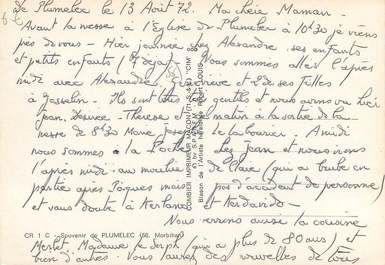 De Plumelec le 13 Août 72. Ma chère Maman
Avant la messe à l'Eglise de Plumelec à 10h30 je viens
près de vous - Hier journée chez Alexandre, ses enfants
et petits enfants (7 déjà). Nous sommes allés l'après
midi avec Alexandre, Geneviève et 2 de ses filles
à Josselin. Ils sont tous gentils et nous avons vu hier
Jean, Denise, Thérèse et matin à la sortie de la
messe de 8h30 le Labourier. A midi
nous sommes à la Roche Jean et nous irons
l'après midi au moulin de Claire (qui a brûlé en
partie après Pâques mais pas d'accident de personne)
et sans doute à Kerlano et Kerdavido -
Nous verrons aussi la cousine
Merlet, Madame Le Serph (qui a plus de 80 ans) et
bien d'autres. Vous aurez des nouvelles de tous
COMBIER IMPRIMEUR MACON (71-S.-&-L.) "CIM"
Blason de l'Artiste Héraldiste Robert LOUIS
CR 1 C - Souvenir de PLUMELEC (56. Morbihan)